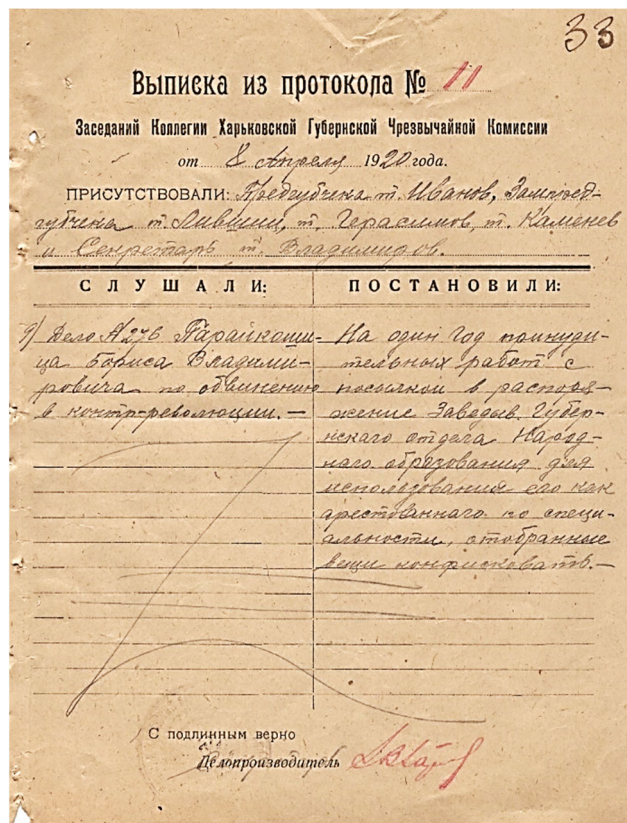 33
Выписка из протокола № 11
Заседаний Коллегии Харьковской Губернской Чрезвычайной Комиссии
от 8 Апреля 1920 года.
ПРИСУТСТВОВАЛИ: Предгубчека т. Иванов, Зампред-
губчека т. Лившиц, т. Герасимов, т. Каменев
и Секретарь т. Владимиров.
СЛУШАЛИ:
9) Дело № 276
ца Бориса Владими-
ровича по обвинению
в контр-революции. —
ПОСТАНОВИЛИ:
На один год принуди-
тельных работ с
посылкой в распоря-
жение Заведыв. Губер-
нскаго отдела Народ-
наго образования для
использования его как
арестованнаго по специ-
альности, отобранные
вещи конфисковать. —
С подлинным верно
Делопроизводитель